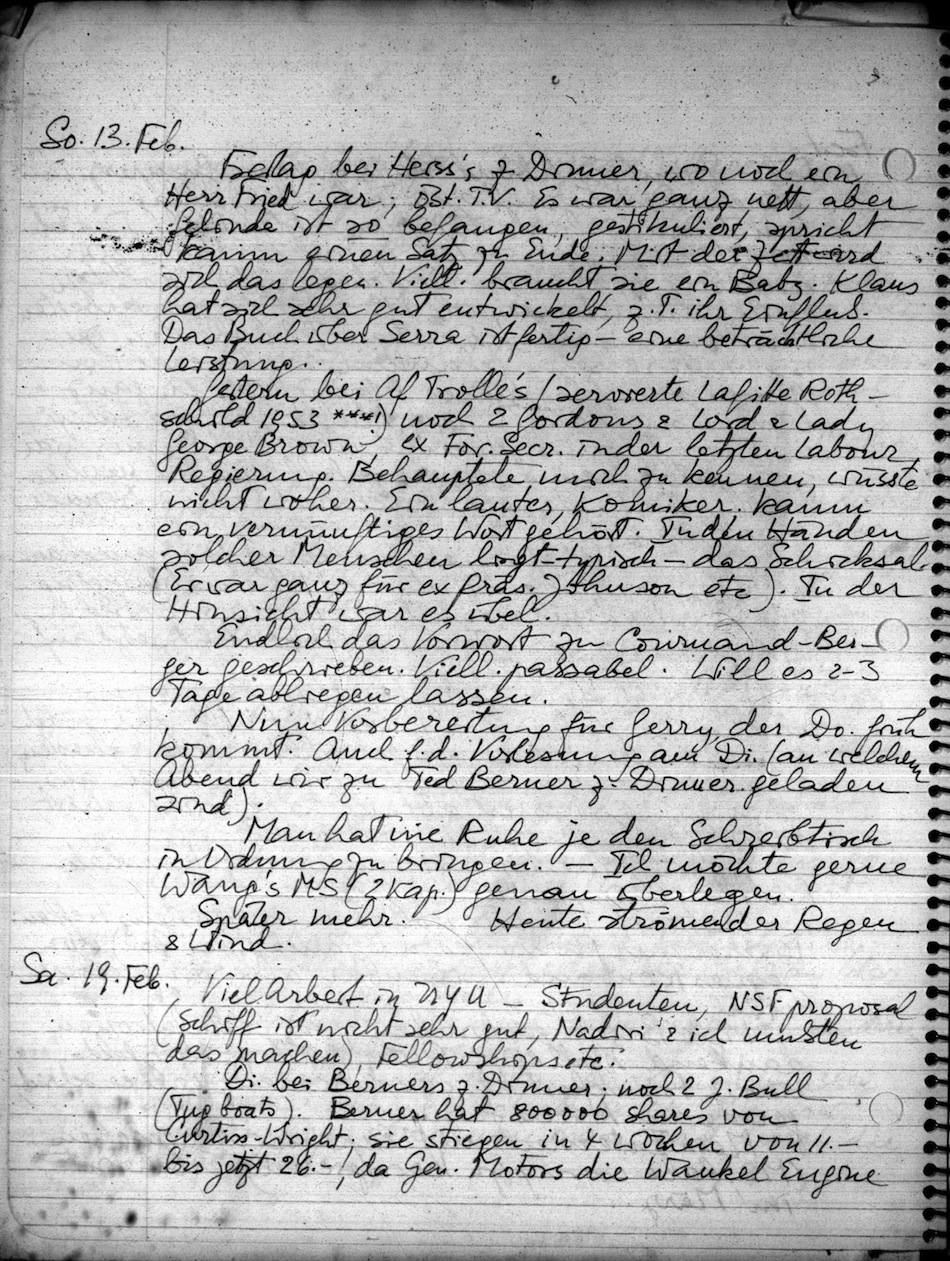 So. 13. Feb.
bei Heiss's z Dinner, wo noch ein
Herr Fried war, öst. T.V. Es war ganz nett, aber
Gelinde ist so befangen, gestikuliert, spricht
kaum einen Satz zu Ende. Mit der Zeit wird
sich das legen. Viell. braucht sie ein Baby. Klaus
hat sich sehr gut entwickelt, z.T. ihr Einfluß.
Das Buch über Serra ist fertig – eine beträchtliche
Leistung.
Gestern bei Af Trolle's (servierte Lafitte Roth-
schild 1953 ***!) noch 2 Gordons & Lord & Lady
George Brown, ex For. Secr. in der letzten Labour
Regierung. Behauptete mich zu kennen, wusste
nicht woher. Ein lauter Komiker. Kaum
ein vernünftiges Wort gehört. In den Händen
solcher Menschen liegt – typisch – das Schicksal
(Er war ganz für ex Präs. Johnson etc). In der
Hinsicht war es übel.
Endlich das Vorwort zu Courmand-Ber-
ger geschrieben. Viell. passabel. Will es 2-3
Tage abliegen lassen.
Nun Vorbereitung für Gerry, der Do. früh
kommt. Auch f.d. Vorlesung am Di. (an welchem
Abend wir zu Ted Berner z. Dinner geladen
sind).
Man hat nie Ruhe je den Schreibtisch
in Ordnung zu bringen. – Ich möchte gerne
Wang's MS (2 Kap.) genau überlegen.
Später mehr. Heute strömender Regen
& Wind.
Sa. 19. Feb.
Viel Arbeit in NYU – Studenten, NSF proposal
(Schiff ist nicht sehr gut, Nadiri & ich mußten
das machen), Fellowships etc.
Di. bei Berners z. Dinner; noch 2 J. Bull
(Tug boats). Berner hat 800000 shares von
Curtiss-Wright; sie stiegen in 4 Wochen von 11.–
bis jetzt 26.–!, da Gen. Motors die Wankel Engine